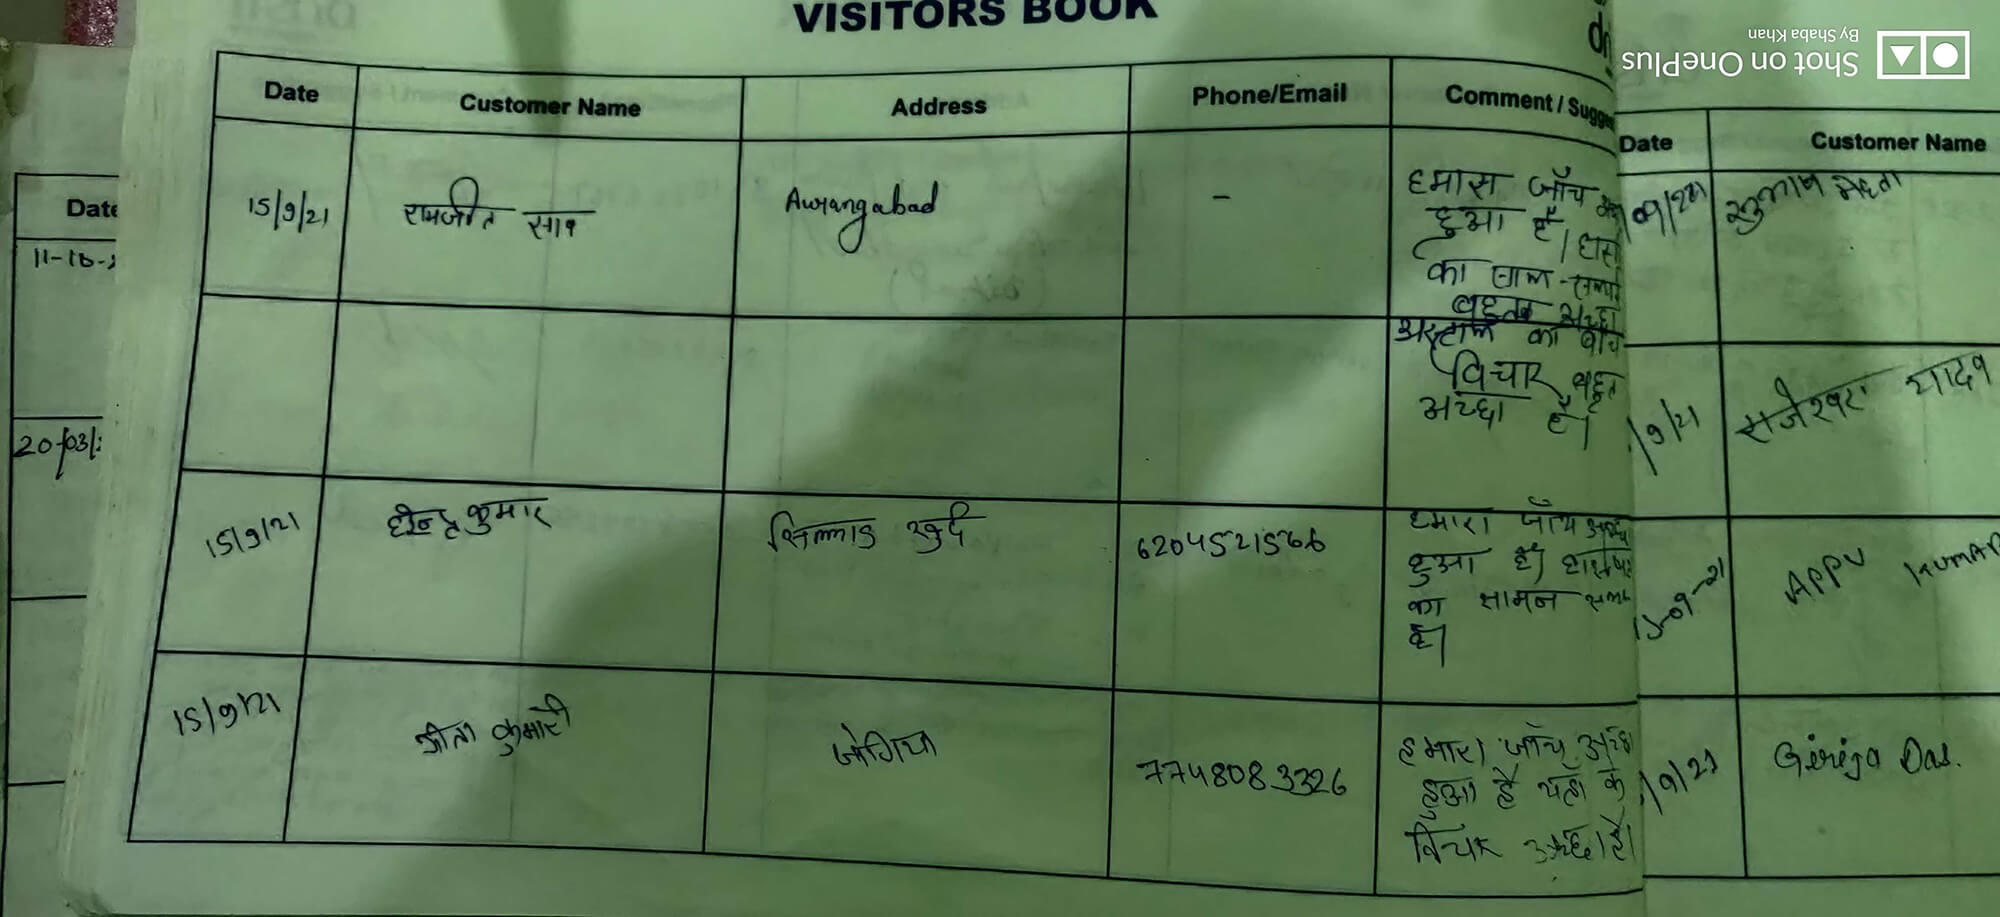 VISITORS BOOK
Date Customer Name Address Phone/Email Comment / Sugge
15/9/21 रामजीत साव Aurangabad -
हमारा जाँच
हुआ है।
का साल
बहुत अच्छा
का
विचार बहुत
अच्छा है।
15/9/21 कुमार खुर्द 6204521566
हमारा जाँच अच्छा
हुआ है।
का सामन
है।
15/9/21 गीता कुमारी जोगिया 7748083326
हमारा जाँच अच्छा
हुआ है यहा के
विचार अच्छा है।
Date Customer Name
09/21 मेहता
/9/21 राजेश्वर यादव
-09-21 APPU KUMAR
/9/21 Girija Das.
Date
11-10-
20/03/
Shot on OnePlus
By Shaba Khan